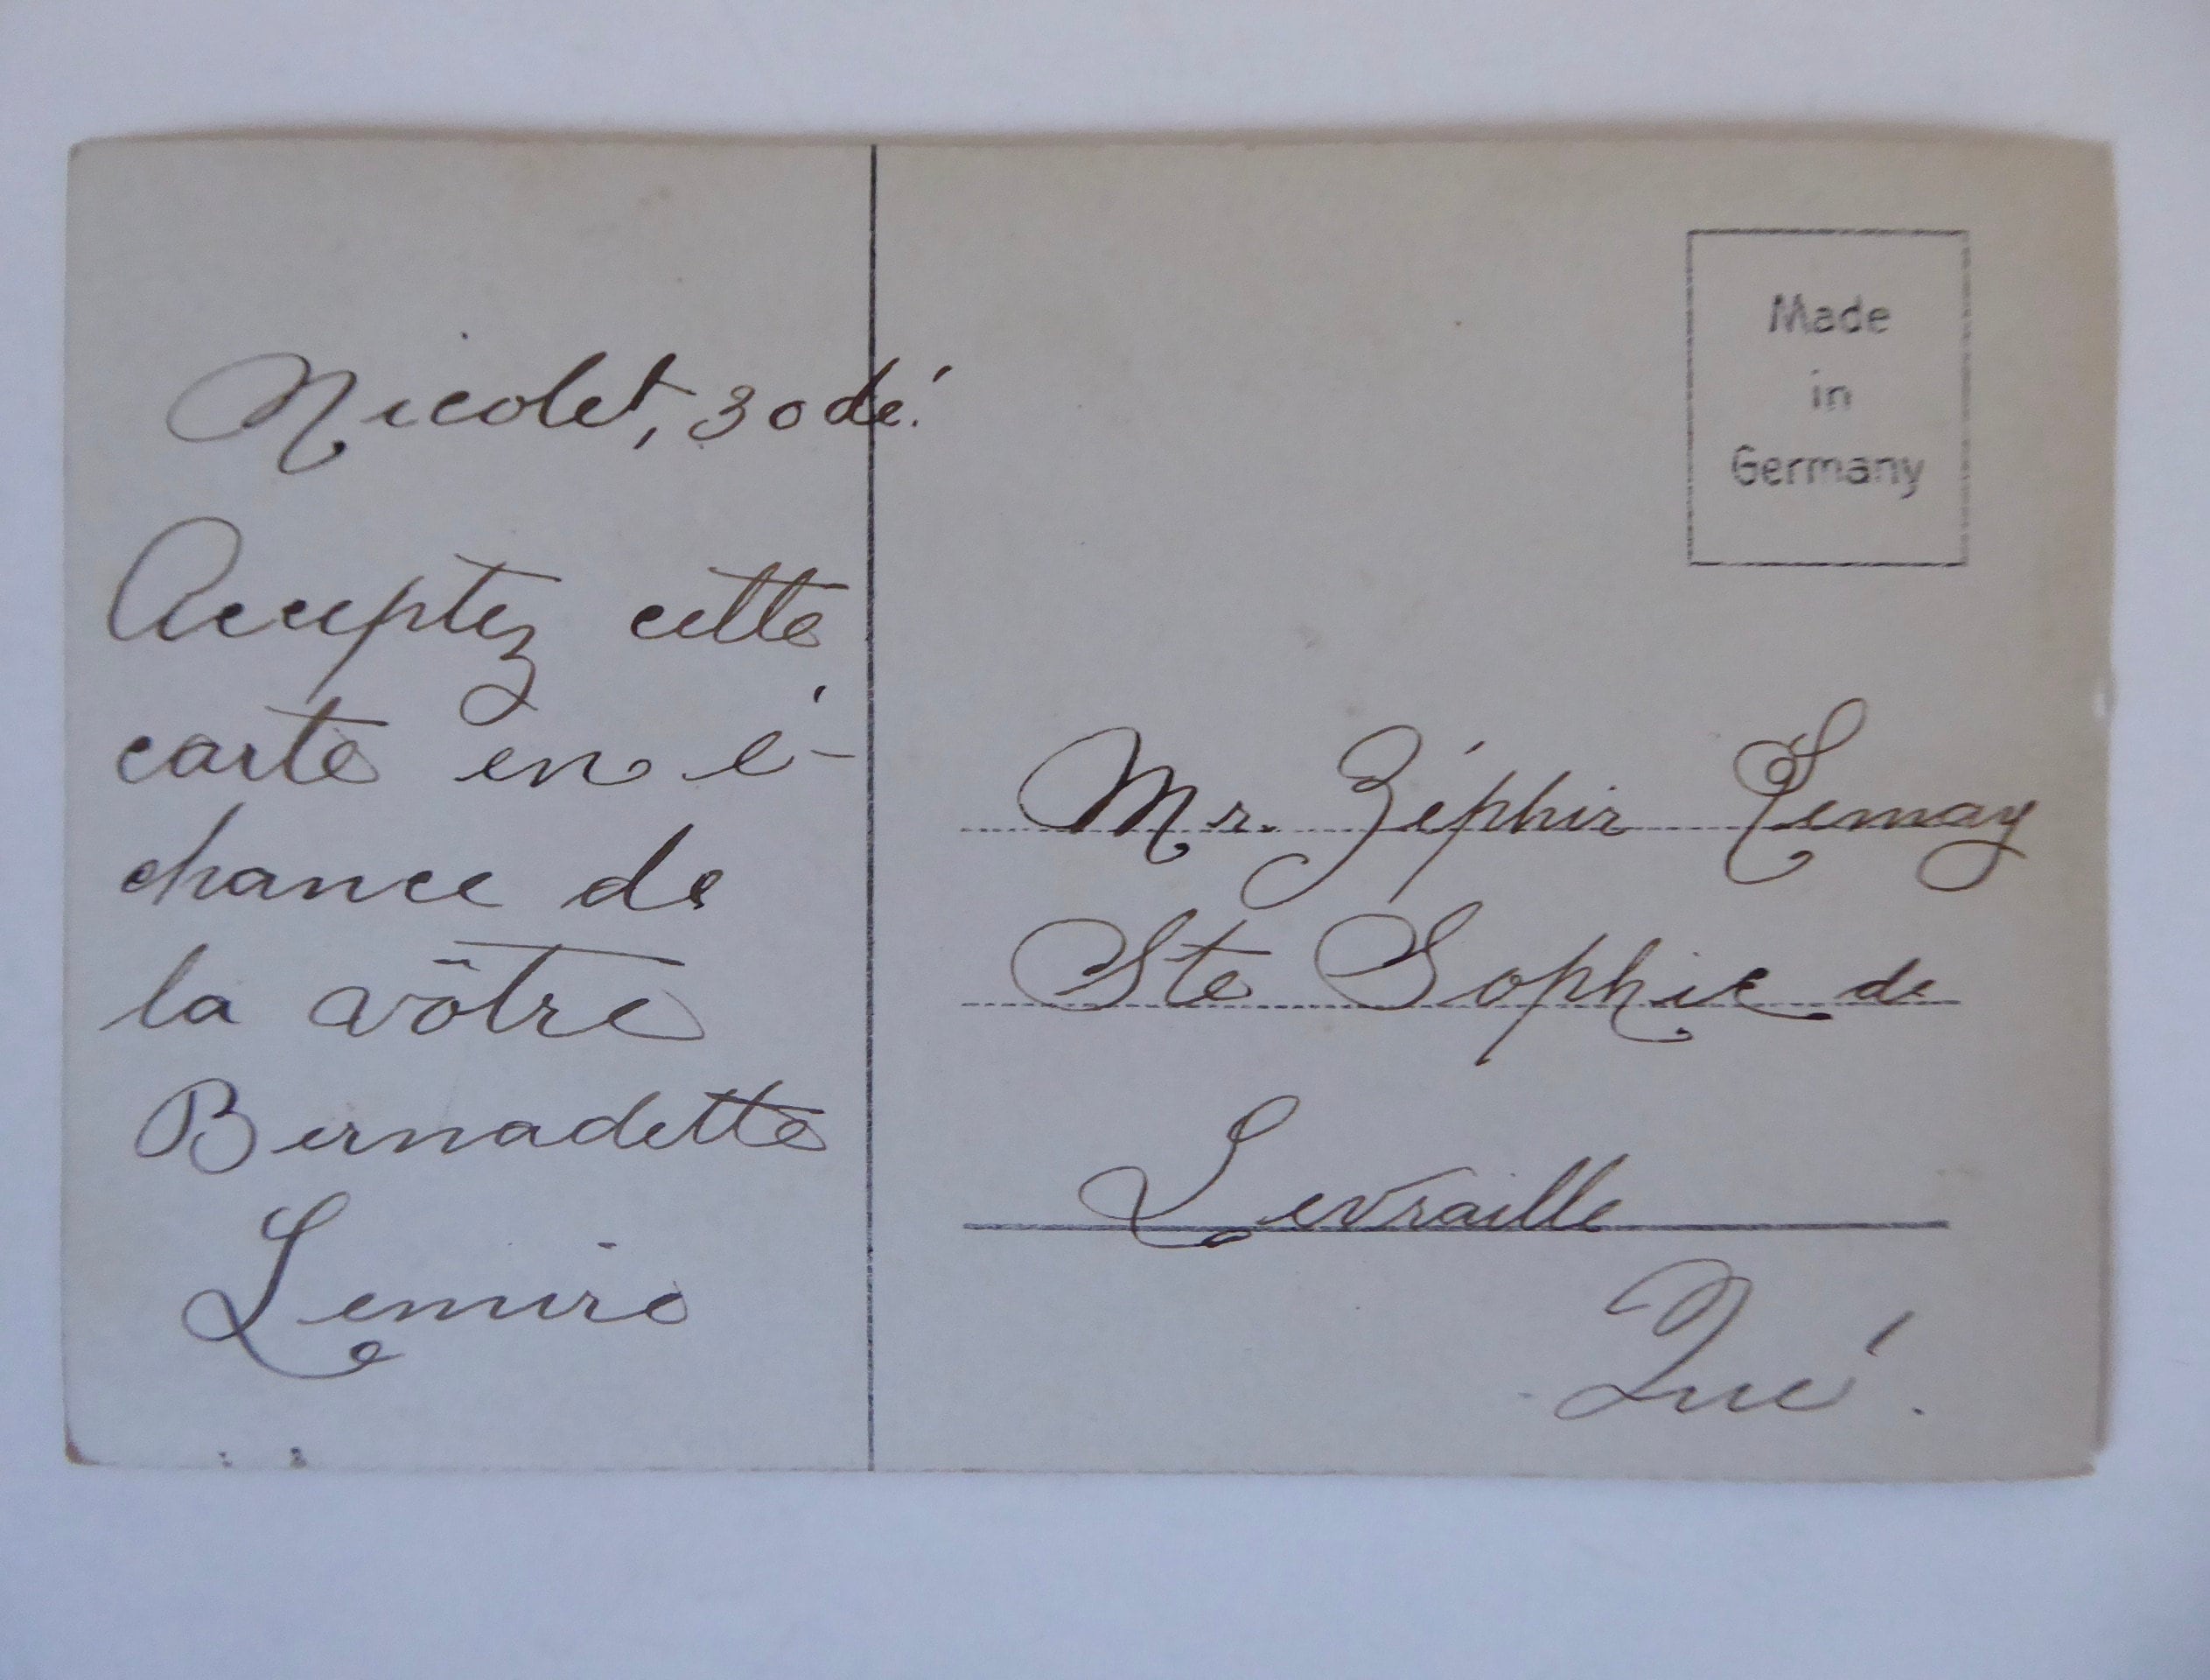 Nicolet, 30 dé.
Acceptez cette
carte en é-
change de
la vôtre
Bernadette
Lemire
Made
in
Germany
Mr. Zéphir Lemay
Ste Sophie de
Levraille
Qué.